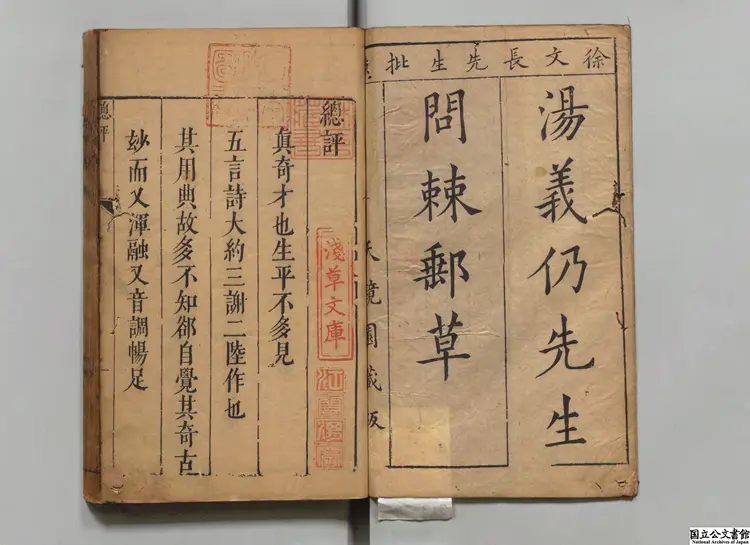 徐文長先生批
湯義仍先生
問棘郵草
天鏡園藏版
總評
真奇才也生平不多見
五言詩大約三謝二陸作也
其用典故多不知郤自覺其奇古
妙而又渾融又音調暢足
總評
淺草文庫
国立公文書館
National Archives of Japan